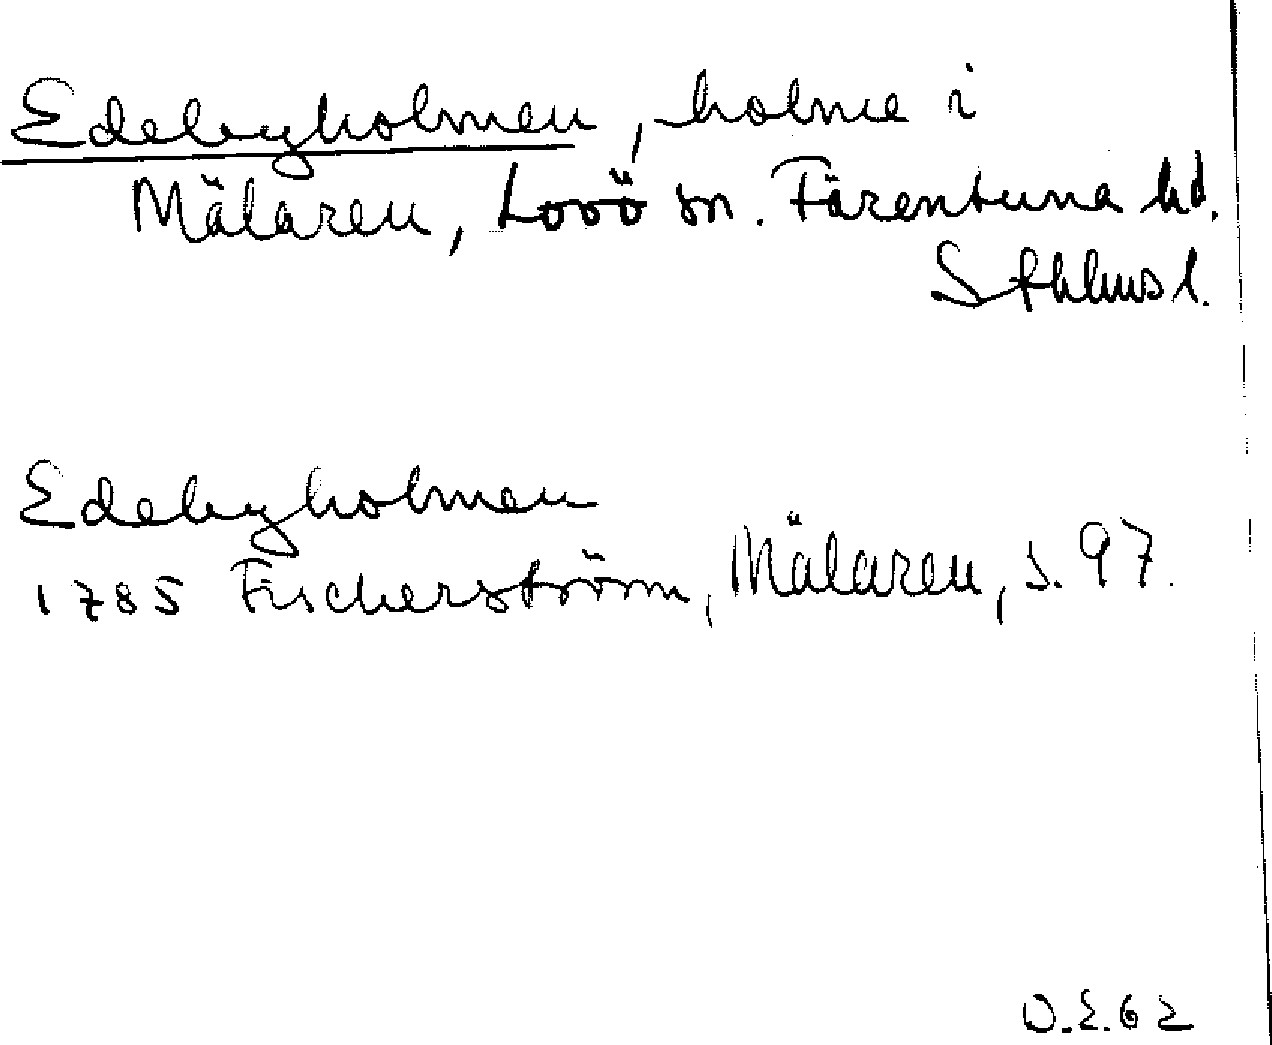 Edebyholmen, holme i
Mälaren, Lovö sn. Färentuna hd.
Sthlms l.
Edebyholmen
1785 Fischerström, Mälaren, s. 97.
O.E.62